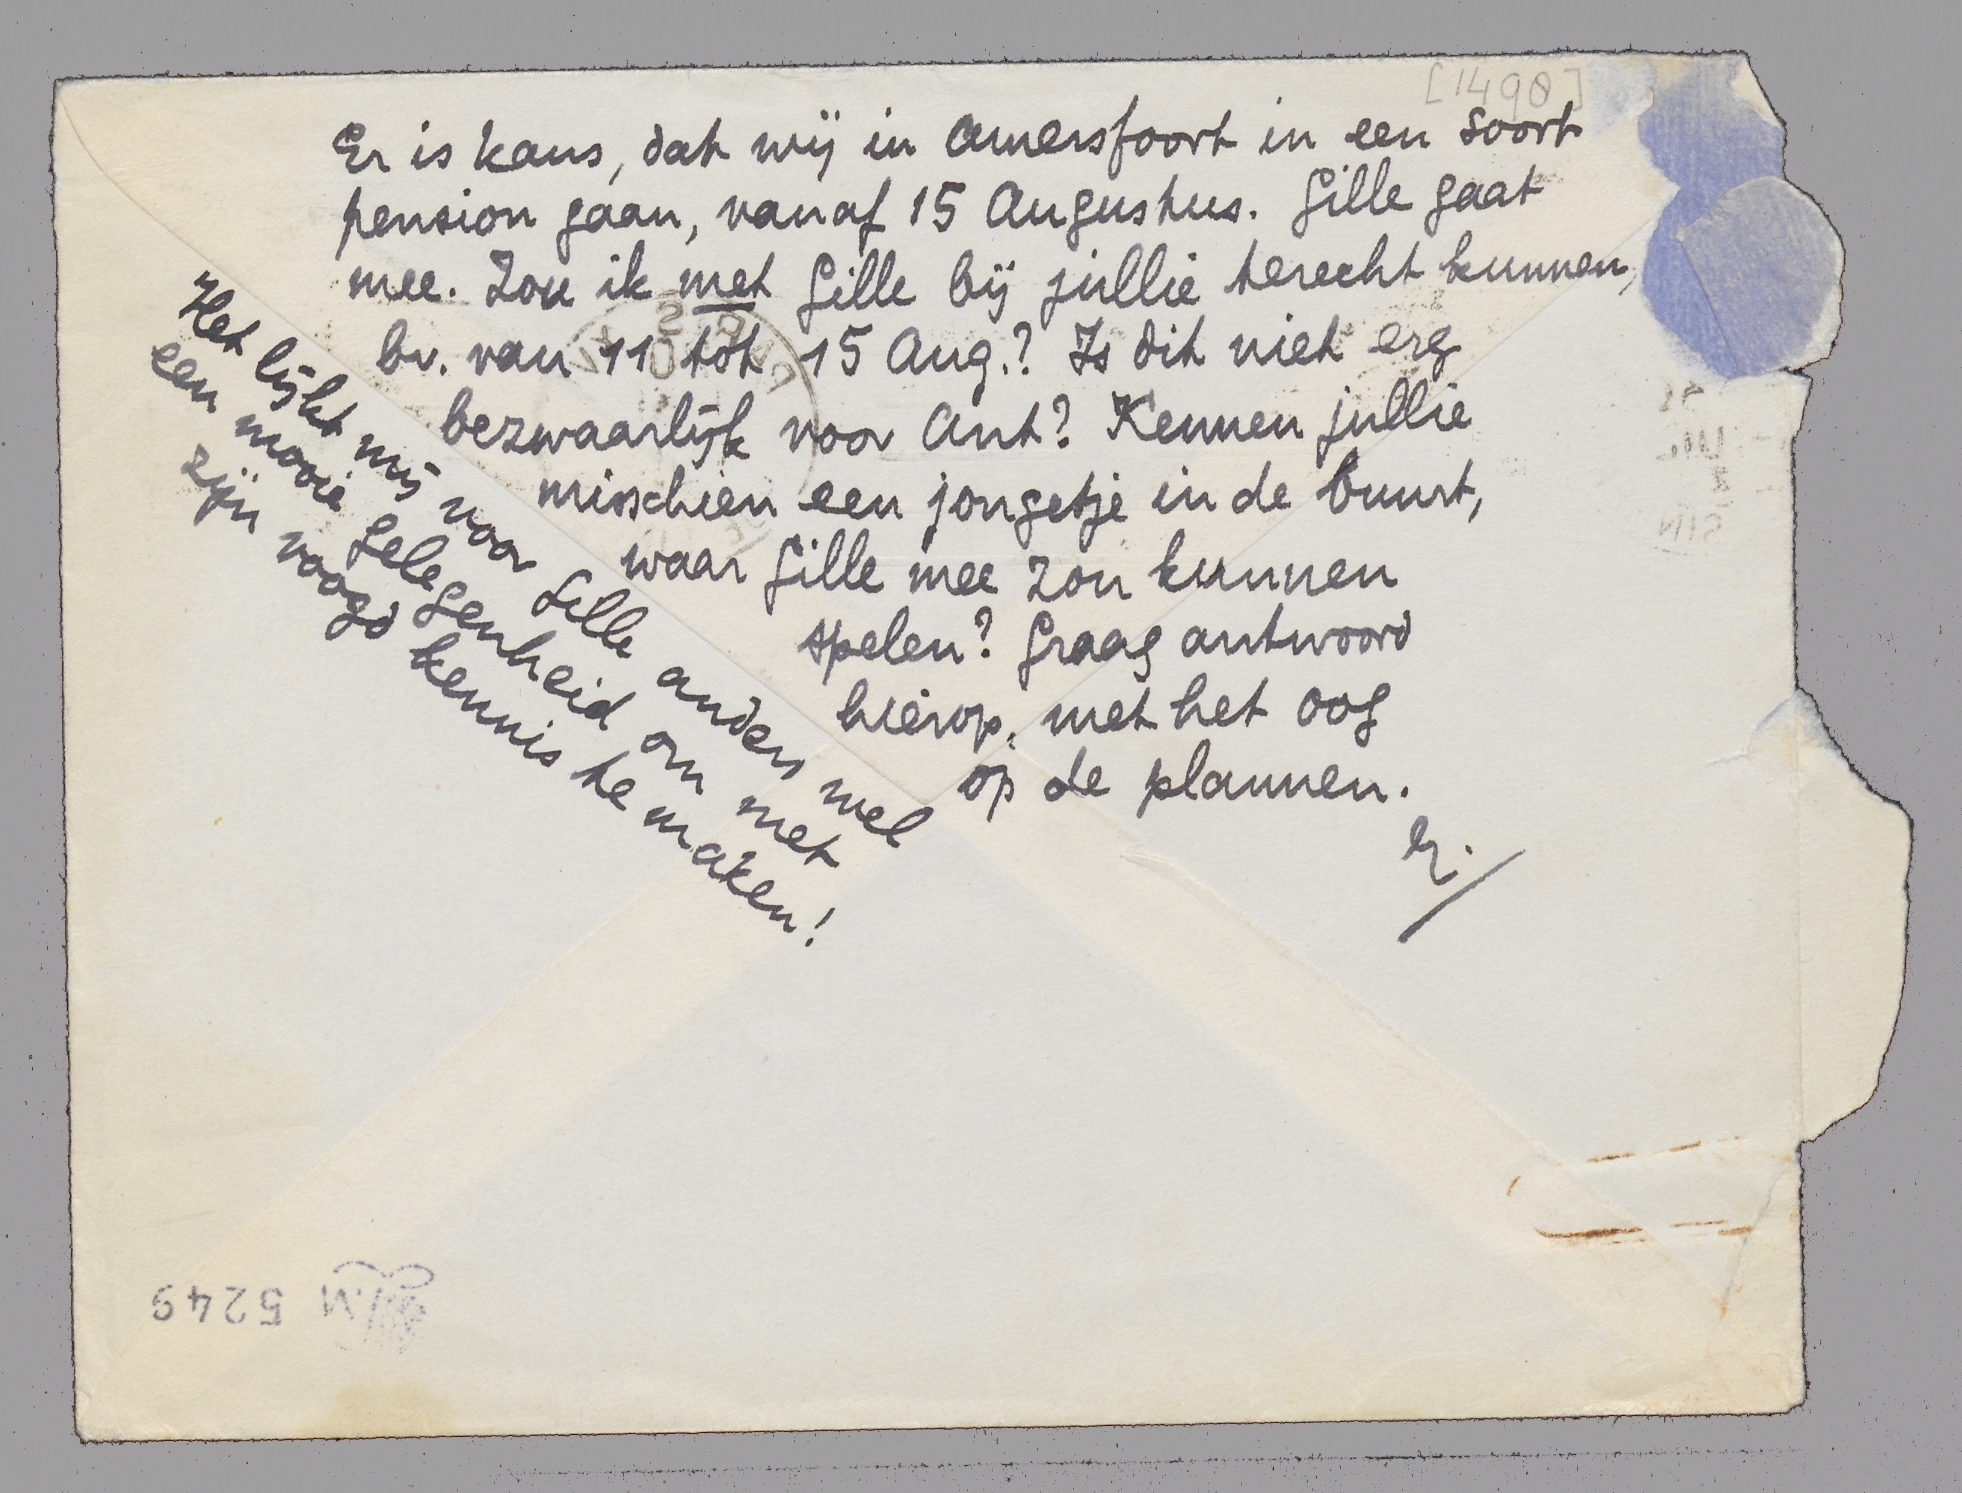 [1490]
Er is kans, dat wij in Amersfoort in een soort
pension gaan, vanaf 15 Augustus. Gille gaat
mee. Zou ik met Gille bij jullie terecht kunnen,
bv. van 11 tot 15 Aug.? Is dit niet erg
bezwaarlijk voor Ant? Kennen jullie
misschien een jongetje in de buurt,
waar Gille mee zou kunnen
spelen? Graag antwoord
hierop, met het oog
op de plannen.
Het lijkt mij voor Gille anders wel
een mooie gelegenheid om met
zijn voogd kennis te maken!
M 5249